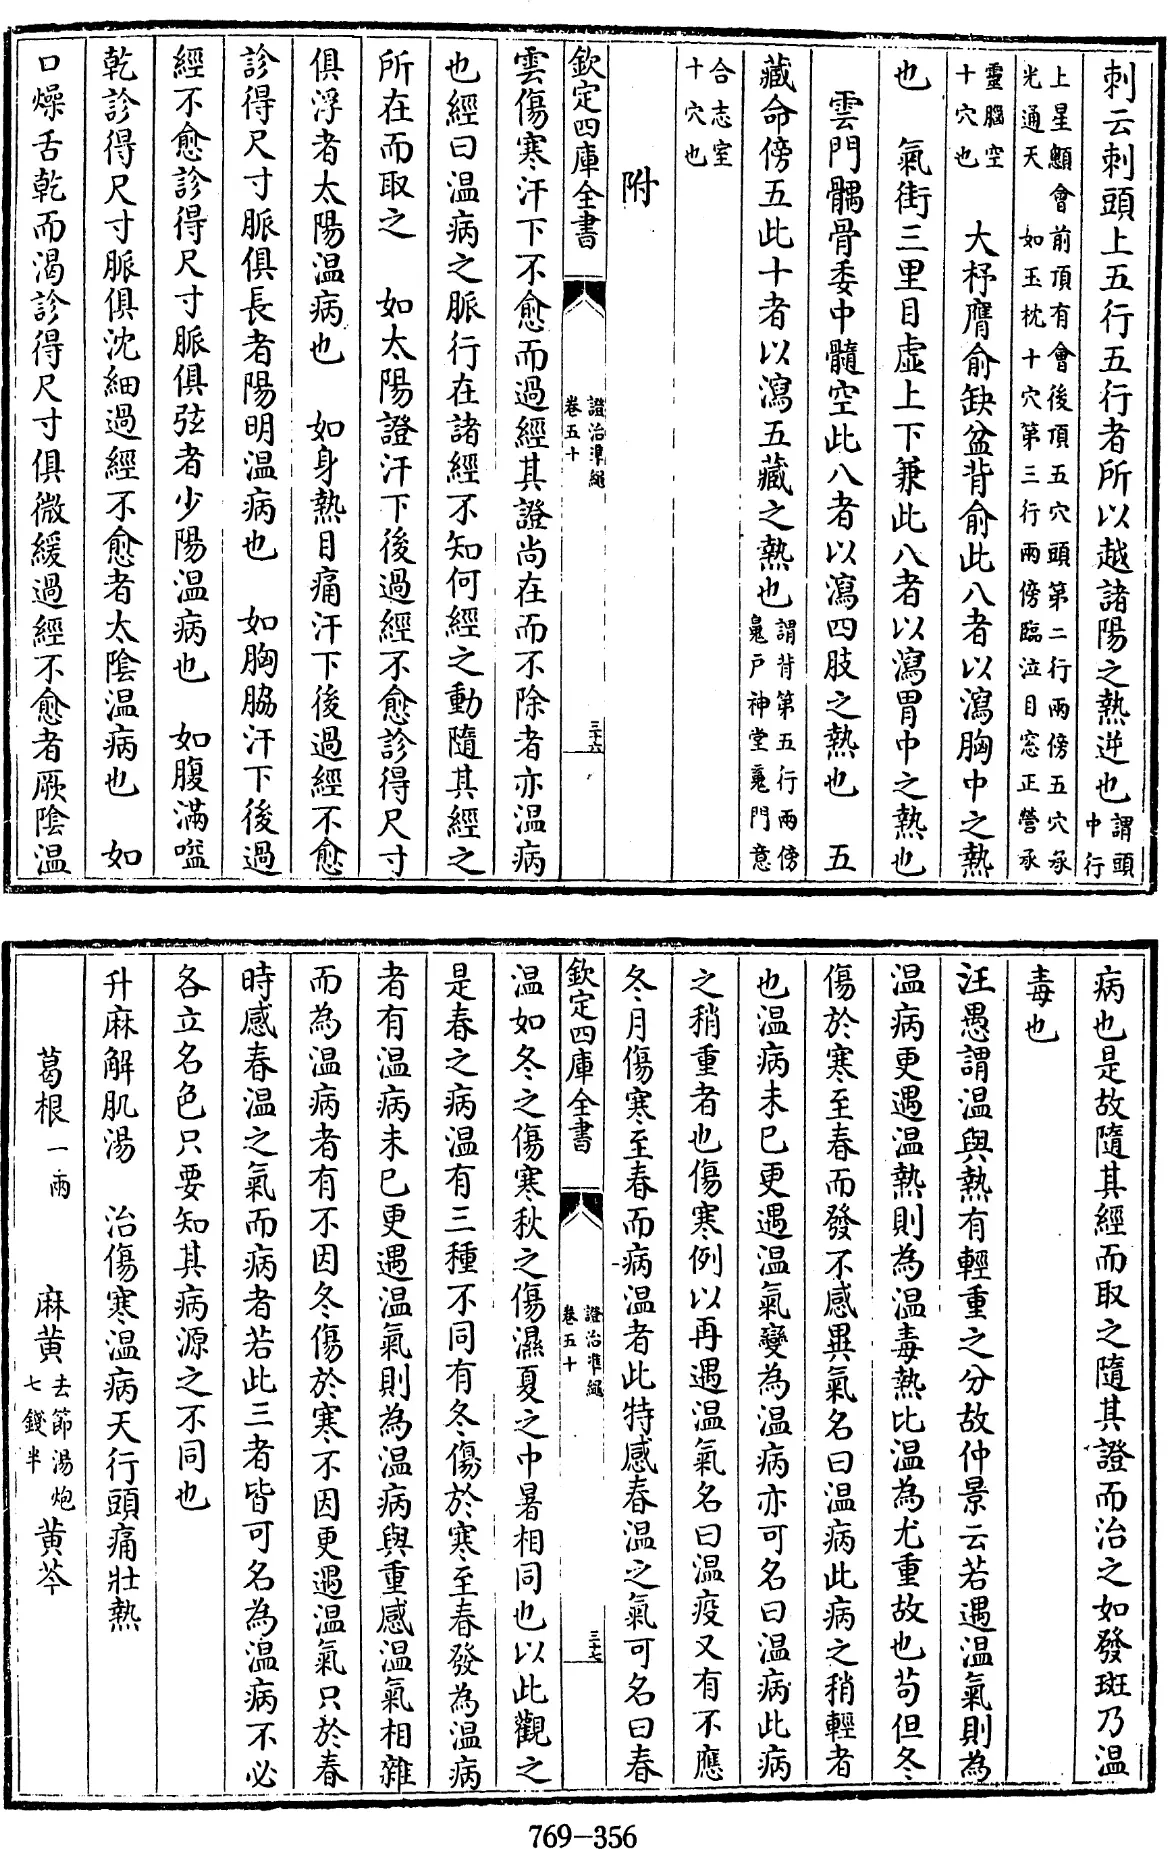 刺云刺頭上五行五行者所以越諸陽之熱逆也謂頭中行
上星顖會前頂有會後頂五穴頭第二行兩傍五穴承
光通天如玉枕十穴第三行兩傍臨泣目窓正營承
靈腦空十穴也　大杼膺俞缺盆背俞此八者以瀉胸中之熱
也　氣街三里目虛上下兼此八者以瀉胃中之熱也
雲門髃骨委中髓空此八者以瀉四肢之熱也　五
藏命傍五此十者以瀉五藏之熱也謂背第五行兩傍鬼戸神堂䰟門意
合志室十穴也
附
欽定四庫全書　證治準繩卷五十　三十六
雲傷寒汗下不愈而過經其證尚在而不除者亦温病
也經曰温病之脈行在諸經不知何經之動隨其經之
所在而取之　如太陽證汗下後過經不愈診得尺寸
俱浮者太陽温病也　如身熱目痛汗下後過經不愈
診得尺寸脈俱長者陽明温病也　如胸脇汗下後過
經不愈診得尺寸脈俱弦者少陽温病也　如腹滿嗌
乾診得尺寸脈俱沈細過經不愈者太陰温病也　如
口燥舌乾而渴診得尺寸俱微緩過經不愈者厥陰温
病也是故隨其經而取之隨其證而治之如發斑乃温
毒也
汪愚謂温與熱有輕重之分故仲景云若遇温氣則為
温病更遇温熱則為温毒熱比温為尤重故也苟但冬
傷於寒至春而發不感異氣名曰温病此病之稍輕者
也温病未已更遇温氣變為温病亦可名曰温病此病
之稍重者也傷寒例以再遇温氣名曰温疫又有不應
冬月傷寒至春而病温者此特感春温之氣可名曰春
欽定四庫全書　證治準繩卷五十　三十七
温如冬之傷寒秋之傷濕夏之中暑相同也以此觀之
是春之病温有三種不同有冬傷於寒至春發為温病
者有温病未已更遇温氣則為温病與重感温氣相雜
而為温病者有不因冬傷於寒不因更遇温氣只於春
時感春温之氣而病者若此三者皆可名為温病不必
各立名色只要知其病源之不同也
升麻解肌湯　治傷寒温病天行頭痛壯熱
葛根一兩　麻黄去節湯炮七錢半　黄芩
769—356